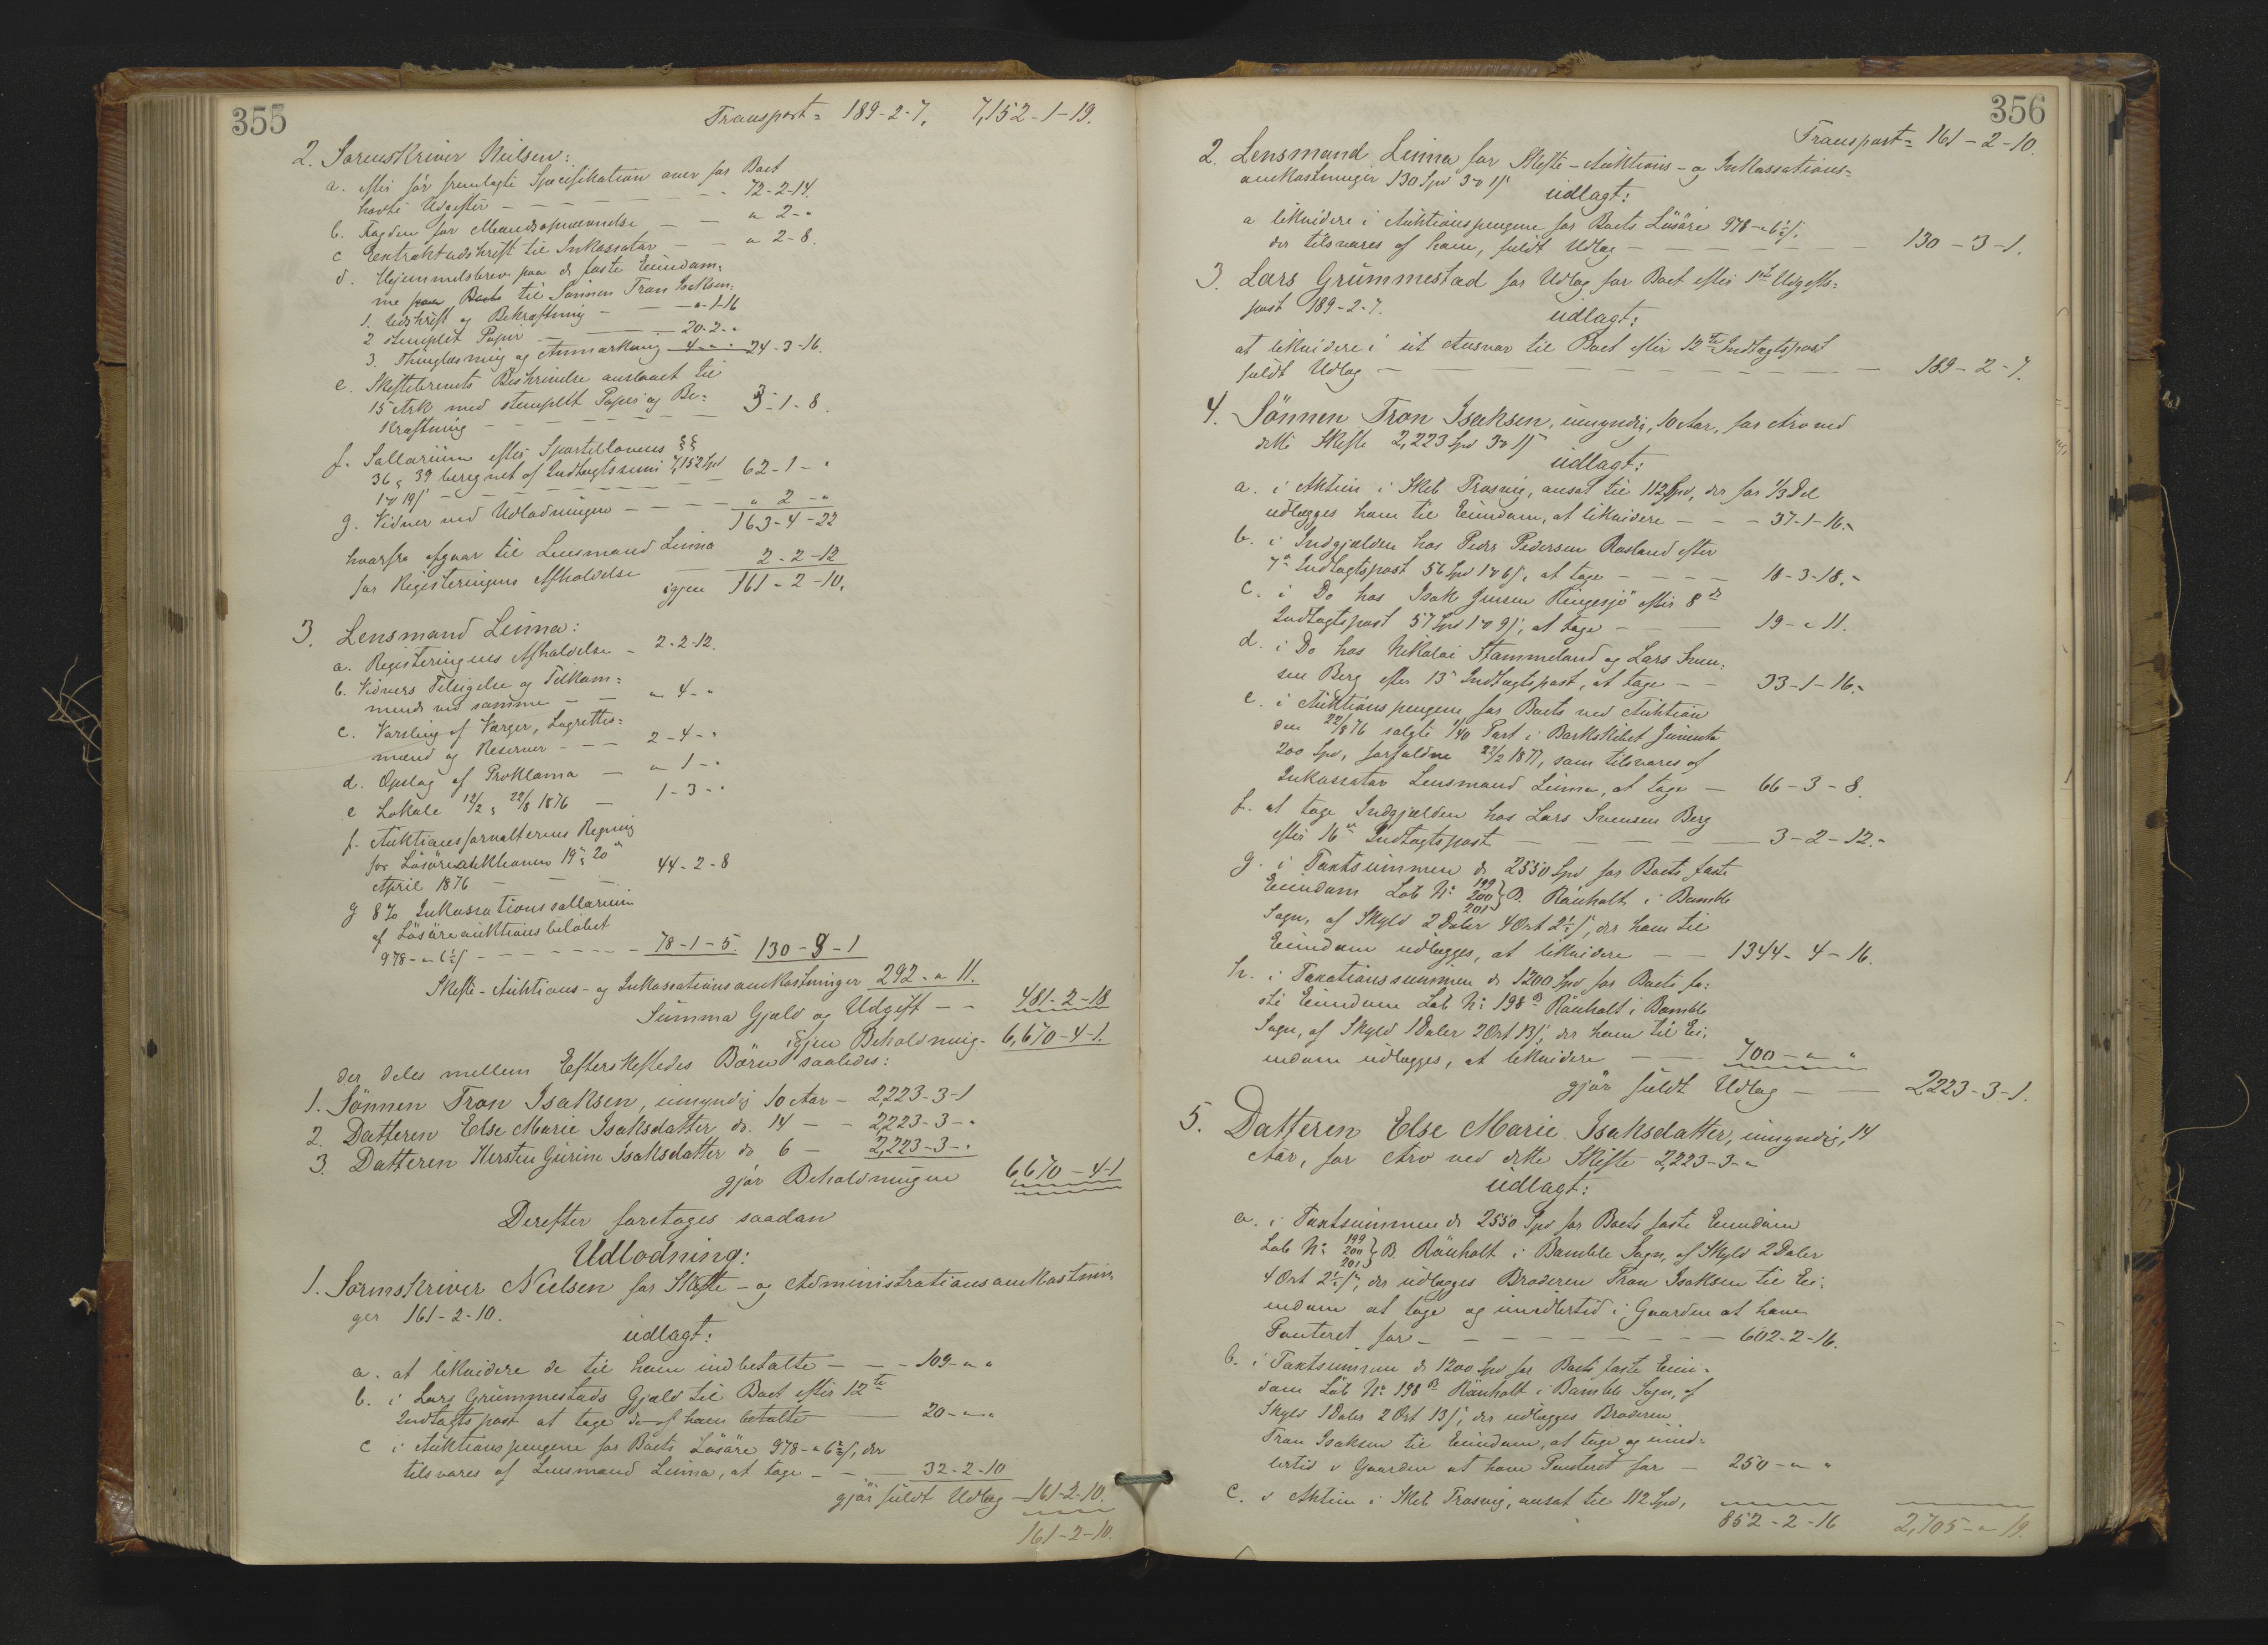 355
Transport = 189-2-7. 7,152-1-19.
2. Sorenskriver Nielsen:
a. efter før fremlagte Specifikation over for Boet
havte Udgifter - - - 72-2-14.
b. Fogden for Mandsopnævnelse - - " 2-"
c Extraktudskrift til Inkassator - - " 2-8.
d. Hjemmelsbrev paa de faste Eiendom=
me til Sønnen Tron Isaksen:
1. Udskrift og Bekræftning - - "-1-16
2 stemplet Papir - - 20-2-"
3. Thinglæsning og Anmærkning 4-"-" 24-3-16.
e. Skiftebrevets Beskrivelse anslaaet til
15 Ark med stemplet Papir og Be=
kræftning - - - 3-1-8.
f. Sallarium efter Sportellovens §§
36 & 39 beregnet af Indtægtssum 7,152 Spd
1 ort 19 s - - - 62-1-"
g. Vidner ved Udlodningen - - - " 2 -"
163-4-22
hvorfra afgaar til Lensmand Leima
for Registeringens Afholdelse - 2-2-12
igjen 161-2-10.
3. Lensmand Leima:
a. Registeringens Afholdelse - 2-2-12.
b. Vidners Tilsigelse og Tilkom=
mende ved samme - - " 4-"
c. Varsling af Værger, Lagrettes=
mænd og Reserver - - - 2-4-"
d. Opslag af Proklama - " 1-"
e Lokale 12/2 & 22/8 1876 - 1-3-"
f. Auktionsforvalterens Regning
for Løsøreauktionen 19 & 20
April 1876 - - - 44-2-8
g 8% Inkassationssallarium
af Løsøreauktionsbeløbet
978-"-6½ s - - - 78-1-5. 130-3-1
Skifte-Auktions- og Inkassationsomkostninger 292-" 11.
Summa Gjæld og Udgift - - 481-2-18
igjen Beholdning - 6,670-4-1.
der deles mellem Efterskiftedes Børn saaledes:
1. Sønnen Tron Isaksen, umyndig 10 Aar - 2,223-3-1
2. Datteren Else Marie Isaksdatter do. 14 - - 2,223-3-"
3. Datteren Kersten Gurine Isaksdatter do 6 - 2,223-3-"
gjør Beholdningen 6,670-4-1
Derefter foretoges saadan
Udlodning:
1. Sorenskriver Nielsen for Skifte- og Administrationsomkostnin=
ger 161-2-10.
udlagt:
a. at likvidere de til ham indbetalte - - - 109-" "
b. i Lars Grummestads Gjæld til Boet efter 12te
Indtægtspost at tage de af ham betalte - 20-"-"
c i Auktionspengene for Boets Løsøre 978-"6½ s, der
tilsvares af Lensmand Leima, at tage - - - 32-2-10
gjør fuldt Udlæg - 161-2-10.
161-2-10.
356
Transport = 161-2-10.
2. Lensmand Leima for Skifte-Auktions- og Inkassations=
omkostninger 130 Spd 3 ort 1 s
udlagt:
a likvidere i Auktionspengene for Boets Løsøre 978-"6½ s,
der tilsvares af ham, fuldt Udlæg - - - 130-3-1.
3. Lars Grummestad for Udlæg for Boet efter 1ste Udgifts=
post 189-2-7.
udlagt:
at likvidere i sit Ansvar til Boet efter 12te Indtægtspost
fuldt Udlæg - - - 189-2-7.
4. Sønnen Tron Isaksen, umyndig, 10 Aar, for Arv ved
dette Skifte 2,223 Spd 3 ort 1 s
udlagt:
a. i Aktien i Skib Trosvig, ansat til 112 Spd, der for 1/3 Del
udlægges ham til Eiendom, at likvidere - - - 37-1-16.
b. i Indgjælden hos Peder Pedersen Rosland efter
7de Indtægtspost 56 Spd 1 ort 6 s, at tage - - - 18-3-18.
c. i Do hos Isak Jensen Ringesjø efter 8de
Indtægtspost 57 Spd 1 ort 9 s, at tage - - - 19-" 11.
d. i Do hos Nikolai Stammeland og Lars Sven=
sen Berg efter 13 Indtægtspost, at tage - - 33-1-16.
e. i Auktionspengene for Boets ved Auktion
den 22/8 76 solgte 1/40 Part i Barkskibet Juventa
200 Spd, forfaldne 22/2 1877, som tilsvares af
Inkassator Lensmand Leima, at tage - 66-3-8.
f. at tage Indgjælden hos Lars Svensen Berg
efter 16de Indtægtspost - - - 3-2-12.
g. i Taxtsummen de 2550 Spd for Boets faste
Eiendom Løb No 199 200 201 } B. Rønholt i Bamble
Sogn, af Skyld 2 Daler 4 Ort 2½ s, der ham til
Eiendom udlægges, at likvidere - - 1344-4-16.
h. i Taxationssummen de 1200 Spd for Boets fa=
ste Eiendom Løb No 198 B Rønholt i Bamble
Sogn, af Skyld 1 Daler 2 Ort 13 s, der ham til Ei=
endom udlægges, at likvidere - - 700-" "
gjør fuldt Udlæg - - 2,223-3-1.
5. Datteren Else Marie Isaksdatter, umyndig, 14
Aar, for Arv ved dette Skifte 2,223-3-"
udlagt:
a. i Taxtsummen de 2550 Spd for Boets faste Eiendom
Løb No 199 200 201 } B. Rønholt i Bamble Sogn, af Skyld 2 Daler
4 Ort 2½ s, der udlægges Broderen Tron Isaksen til Ei=
endom at tage og imidlertid i Gaarden at have
Panteret for - - - 602-2-16.
b. i Taxtsummen de 1200 Spd for Boets faste Eien=
dom Løb No 198 B Rønholt i Bamble Sogn, af
Skyld 1 Daler 2 Ort 13 s, der udlægges Broderen
Tron Isaksen til Eiendom, at tage og imid=
lertid i Gaarden at have Panteret for - 250-" "
c. i Aktien i Skib Trosvig, ansat til 112 Spd,
852-2-16 2,705-" 19.